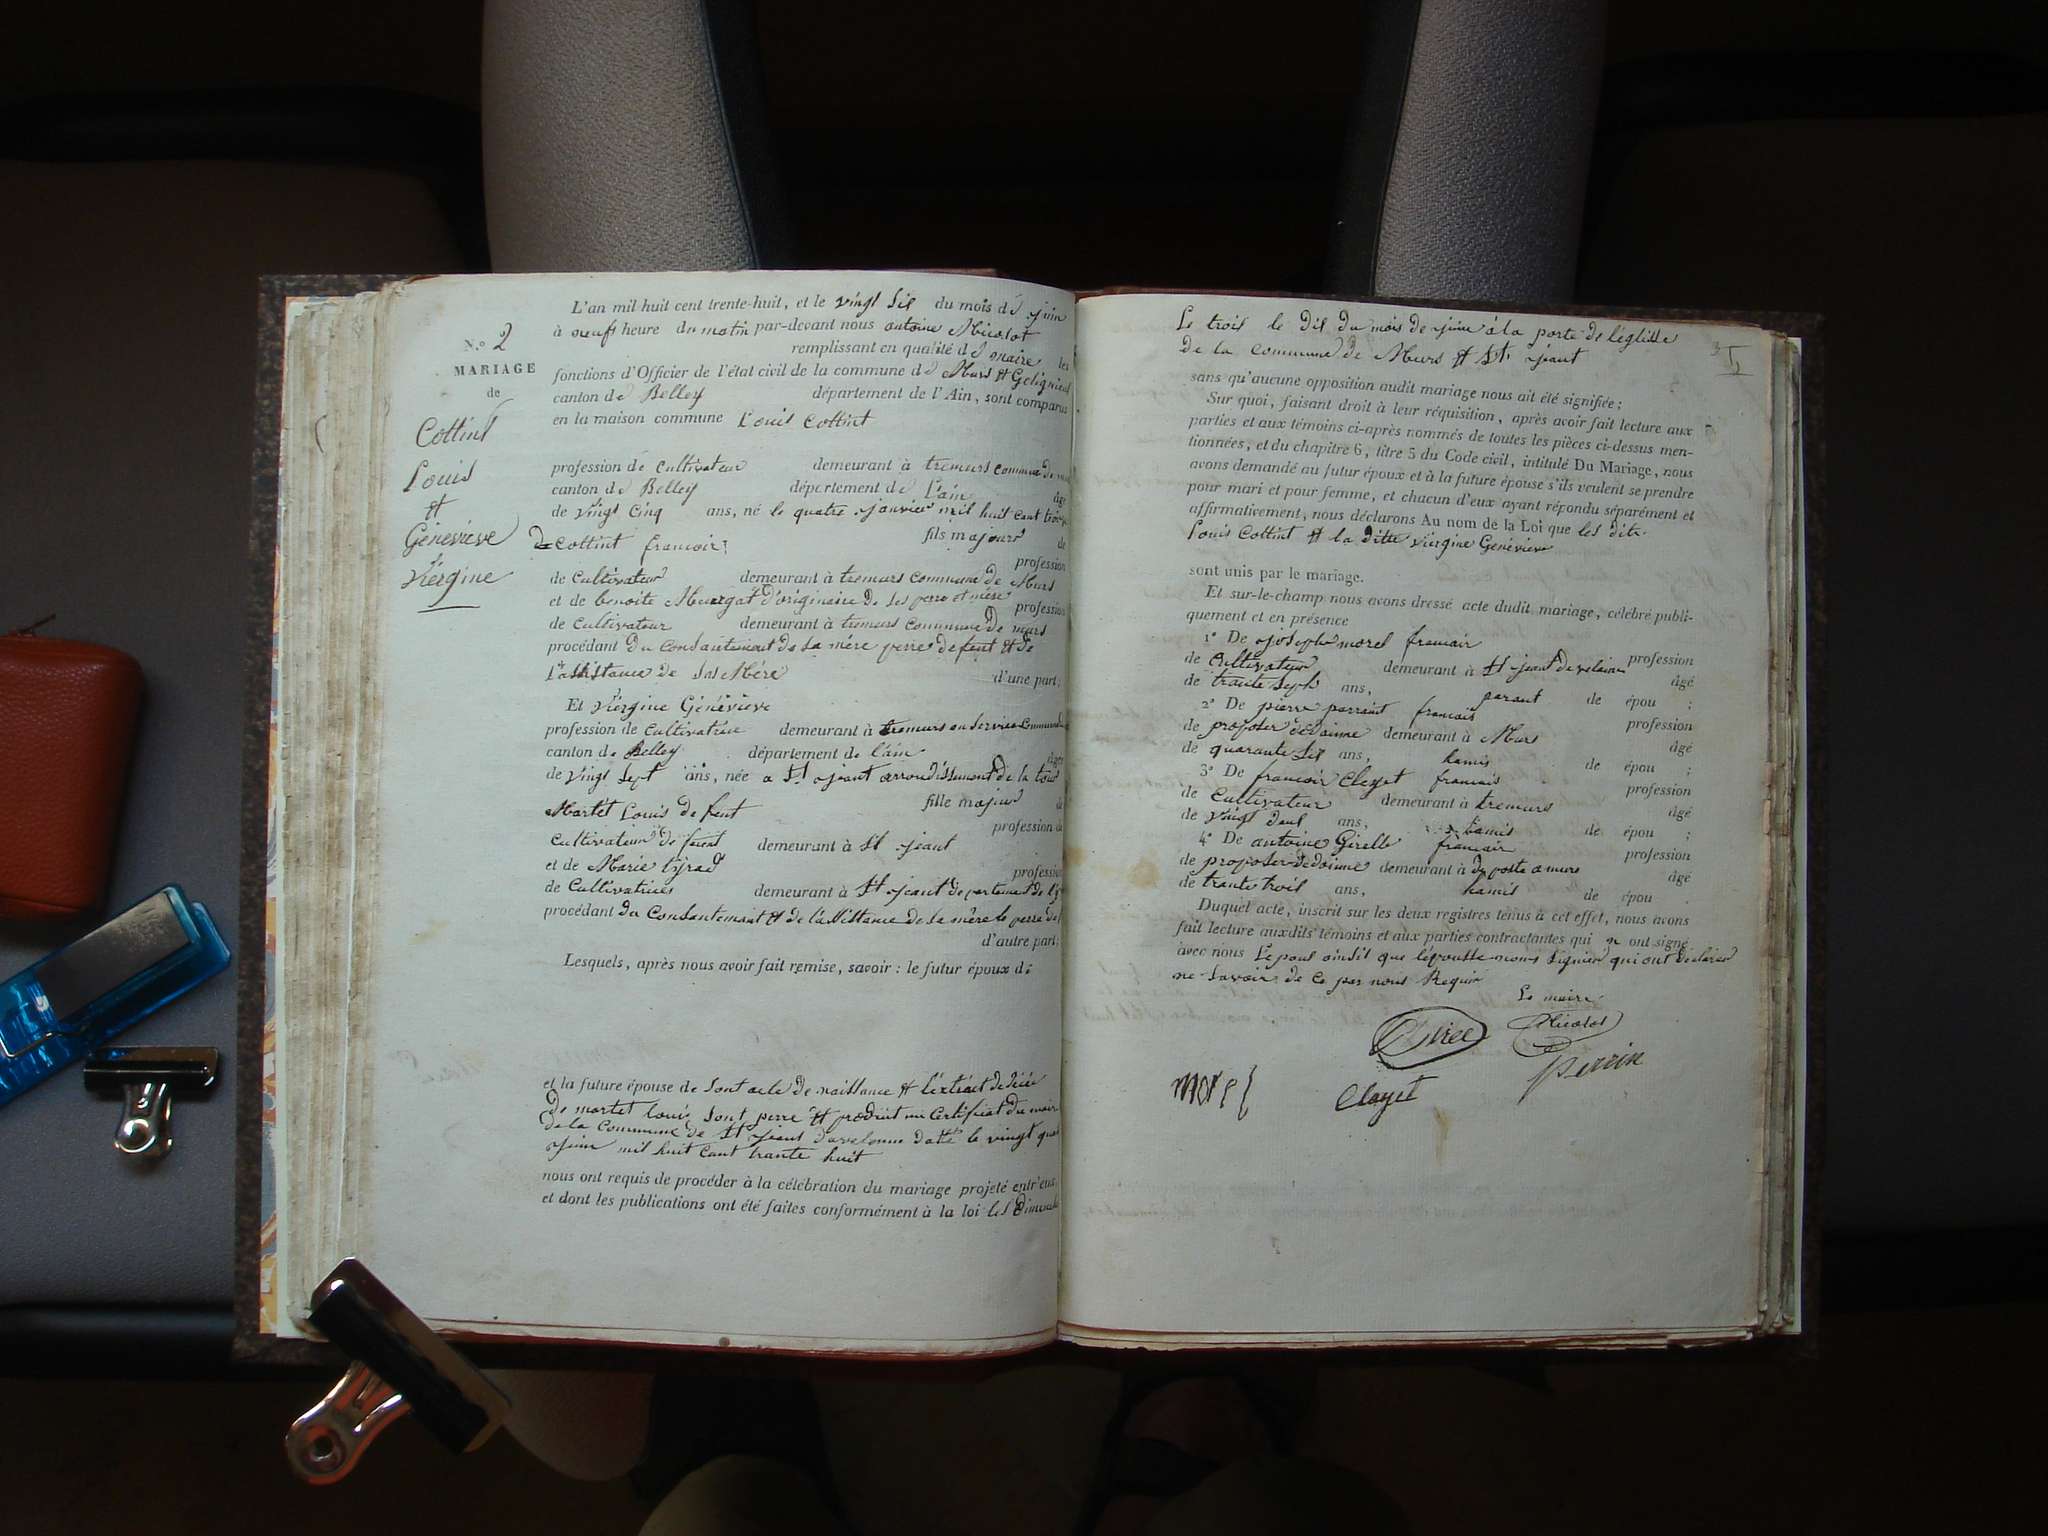 L'an mil huit cent trente-huit, et le vingt sis du mois de juin
à neuf heure du matin par-devant nous antoine Micolot
remplissant en qualité de maire les
fonctions d'Officier de l'état civil de la commune de Murs et Gelignieux
canton de Belley département de l'Ain, sont comparus
en la maison commune Louis Cottint
N.º 2
MARIAGE
de
Cottint
Louis
et
Géneviève
Viergine
profession de cultivateur demeurant à tremurs commune de
canton de Belley département de L'ain âgé
de vingt cinq ans, né le quatre janvier mil huit cent
de Cottint francoir fils majour de
profession
de Cultivateur demeurant à tremurs commune de Murs
et de benoite d'originaire de ses perre et mère
profession
de Cultivateur demeurant à tremurs commune de murs
procédant du consantement de sa mére perre defent et de
L'asistance de sas Mére d'une part;
Et viergine Géneviève
profession de cultivatrice demeurant à tremurs en service
canton de Belley département de l'ain âgée
de vingt sept ans, née a St jeant arrondissement de la tour
Martet Louis defent fille majur de
profession de
Cultivateur defent demeurant à St jeant
et de Marie profession
de Cultivatrices demeurant à St jeant departement de
procédant du Consantemant et de l'asistance de sa mère le perre
d'autre part;
Lesquels, après nous avoir fait remise, savoir : le futur époux de
et la future épouse de sont acte de naissance et l'extrait de
De martet louis sont perre et produit un certificat du maire
de la commune de St jeant datté le vingt
juin mil huit cant trante huit
nous ont requis de procéder à la célébration du mariage projeté entr'eux,
et dont les publications ont été faites conformément à la loi les
Le trois le dis du mois de juin à la porte de léglisse
de la commune de Murs et St. jeant
sans qu'aucune opposition audit mariage nous ait été signifiée;
Sur quoi, faisant droit à leur réquisition, après avoir fait lecture aux
parties et aux témoins ci-après nommés de toutes les pièces ci-dessus men-
tionnées, et du chapitre 6, titre 5 du Code civil, intitulé Du Mariage, nous
avons demandé au futur époux et à la future épouse s'ils veulent se prendre
pour mari et pour femme, et chacun d'eux ayant répondu séparément et
affirmativement, nous déclarons Au nom de la Loi que les dits
Louis Cottint et la ditte viergine Géneviève
sont unis par le mariage.
Et sur-le-champ nous avons dressé acte dudit mariage, célébré publi-
quement et en présence
1º De joseph morel francair
profession
de Cultivateur demeurant à St jeant
âgé
de trante seph ans, parant de épou ;
2º De pierre parraint francais
profession
de proposer dédoinne demeurant à Murs
âgé
de quarante sis ans, hamis de épou ;
3º De francoir Clayet francais
profession
de Cultivateur demeurant à tremurs
âgé
de vingt ans, hamis de épou ;
4º De antoine Girelle francair
profession
de proposer dedoinne demeurant à de poste a murs
âgé
de trante trois ans, hamis de épou
Duquel acte, inscrit sur les deux registres tenus à cet effet, nous avons
fait lecture auxdits témoins et aux parties contractantes qui n ont signé
avec nous Le poul ainsit que lépousse nont signier qui ont déclarer
ne savoir de ce par nous Requir
Le maire
Micolot
Perrin
morel Clayet